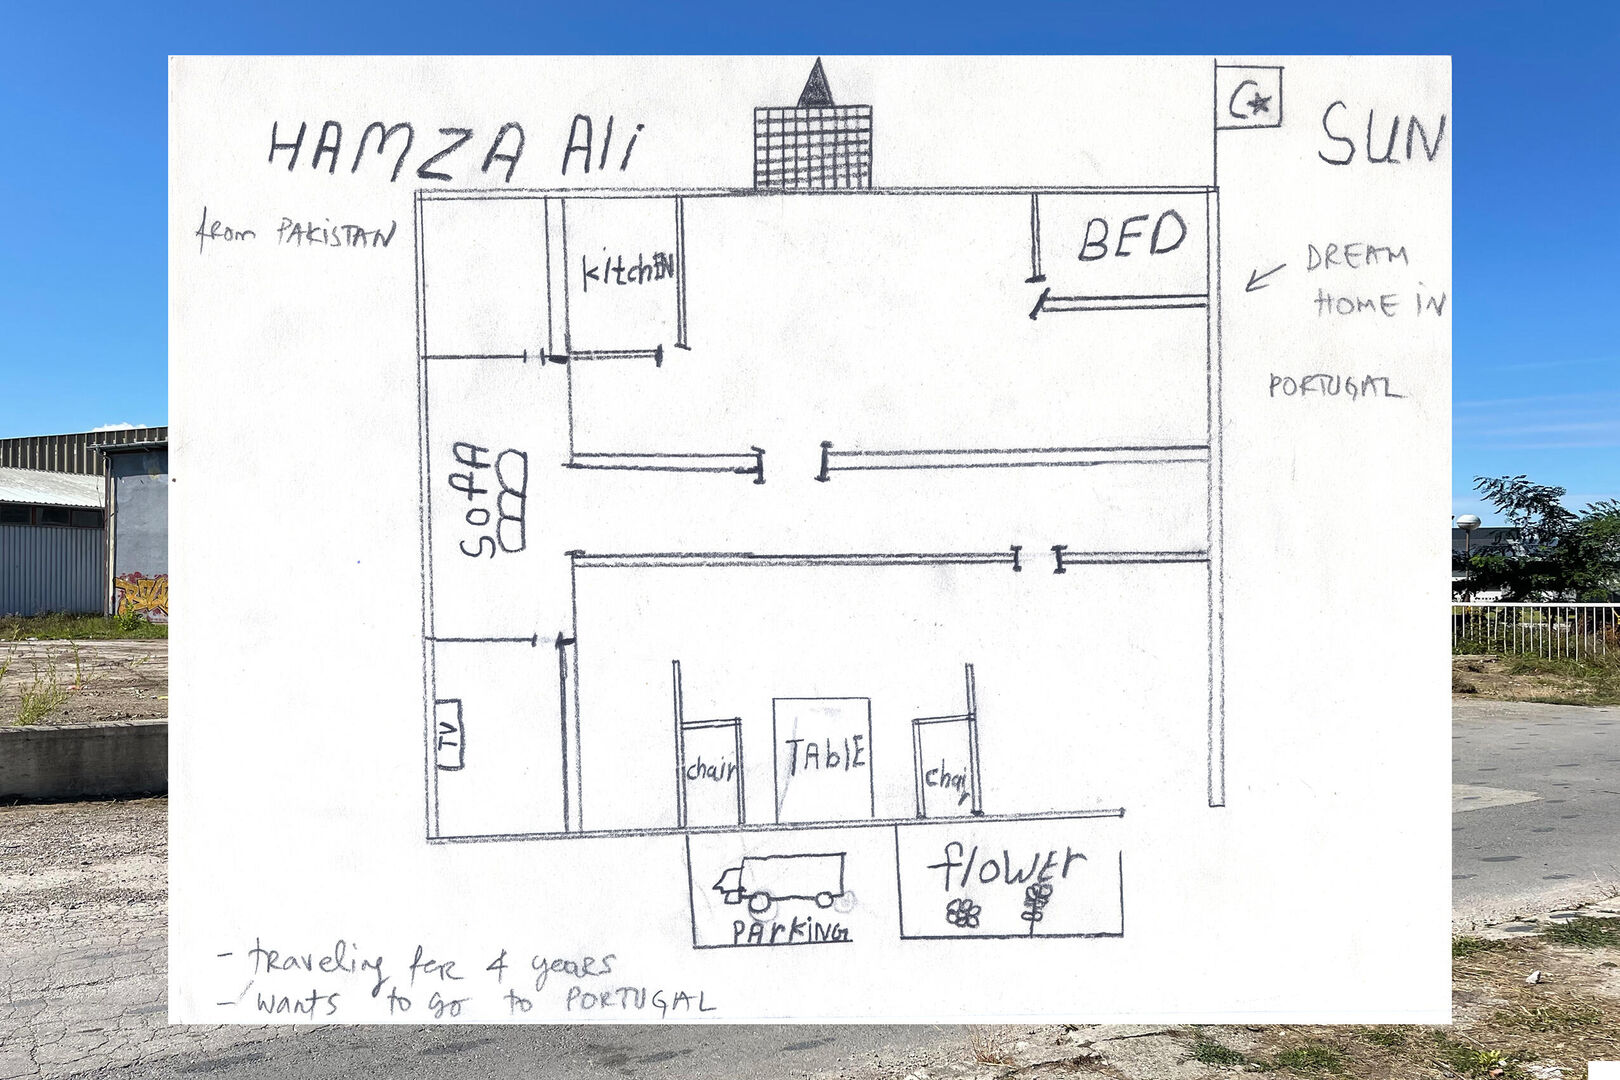 HAMZA Ali
SUN
from PAKISTAN
kitchIN
BED
DREAM
HOME IN
PORTUGAL
SofA
TV
chair
TAblE
chair
flowEr
PArKiNG
- traveling for 4 years
- wants to go to PORTUGAL